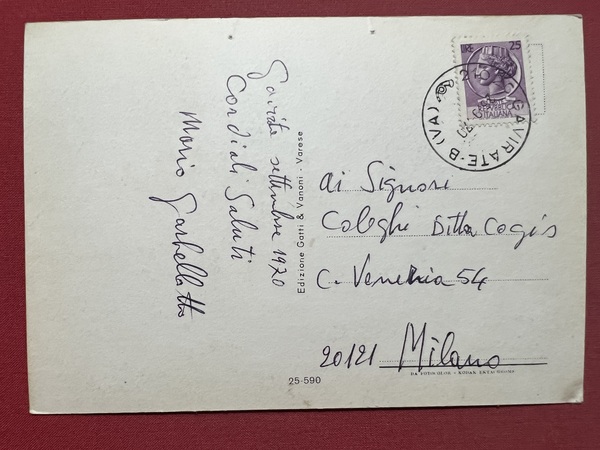 Gavirate settembre 1970
Cordiali Saluti
Mario Garbellotto
Edizione Gatti & Vanoni - Varese
LIRE 25
REPUBBLICA
ITALIANA
GAVIRATE-B (VA)
ai Signori
Coleghi Ditta Cogis
C. Venezia 54
20121 Milano
DA FOTOCOLOR - KODAK EKTACHROME
25-590